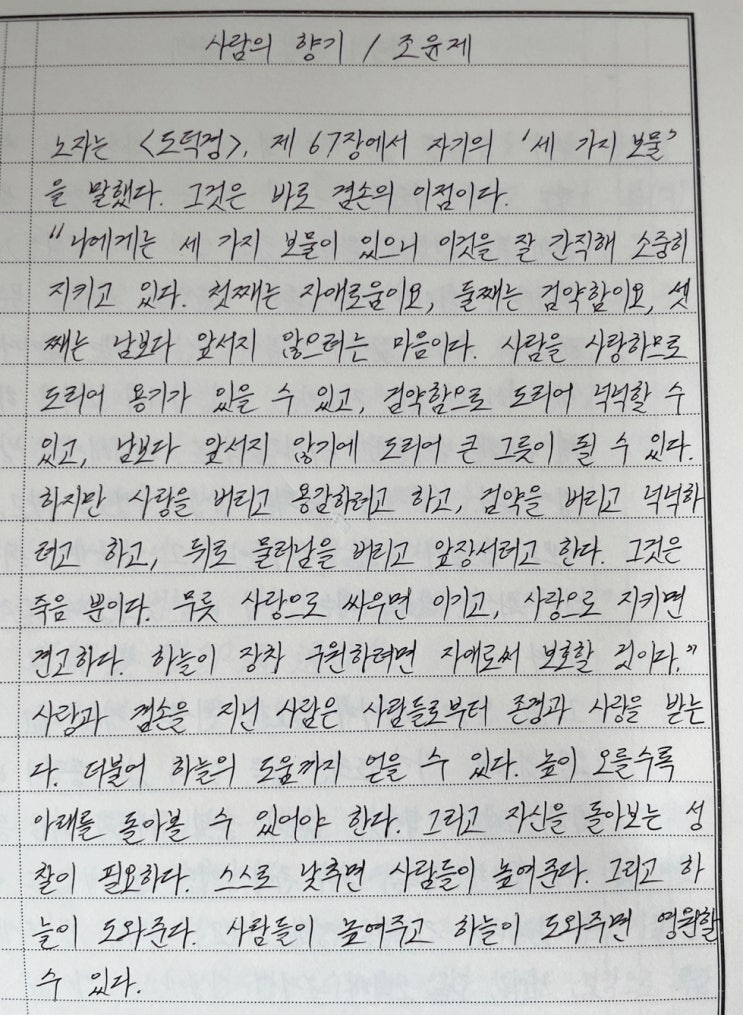 사람의 향기 / 조윤제
노자는 <도덕경>, 제 67장에서 자기의 '세 가지 보물'
을 말했다. 그것은 바로 겸손의 이점이다.
"나에게는 세 가지 보물이 있으니 이것을 잘 간직해 소중히
지키고 있다. 첫째는 자애로움이요, 둘째는 검약함이요, 셋
째는 남보다 앞서지 않으려는 마음이다. 사람을 사랑하므로
도리어 용기가 있을 수 있고, 검약함으로 도리어 넉넉할 수
있고, 남보다 앞서지 않기에 도리어 큰 그릇이 될 수 있다.
하지만 사랑을 버리고 용감하려고 하고, 검약을 버리고 넉넉하
려고 하고, 뒤로 물러남을 버리고 앞장서려고 한다. 그것은
죽음 뿐이다. 무릇 사랑으로 싸우면 이기고, 사랑으로 지키면
견고하다. 하늘이 장차 구원하려면 자애로써 보호할 것이다."
사랑과 겸손을 지닌 사람은 사람들로부터 존경과 사랑을 받는
다. 더불어 하늘의 도움까지 얻을 수 있다. 높이 오를수록
아래를 돌아볼 수 있어야 한다. 그리고 자신을 돌아보는 성
찰이 필요하다. 스스로 낮추면 사람들이 높여준다. 그리고 하
늘이 도와준다. 사람들이 높여주고 하늘이 도와주면 영원할
수 있다.